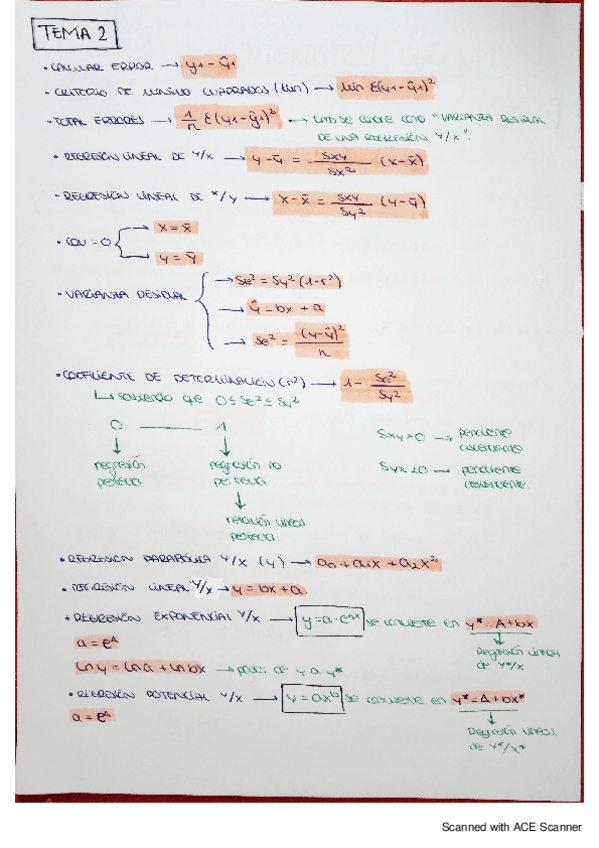 TEMA 2
· CALCULAR ERROR → y₁ - ŷ₁
· CRITERIO DE MINIMO CUADRADOS (Min) → Min Σ(y₁-ŷ₁)²
· TOTAL ERRORES → 1/n Σ(y₁-ŷ₁)² → como "VARIANZA RESIDUAL
DE UNA REGRESIÓN Y/X".
· REGRESIÓN LINEAL DE Y/X → y-ȳ = Sxy/Sx² (x-x̄)
· REGRESIÓN LINEAL DE X/Y → x-x̄ = Sxy/Sy² (y-ȳ)
· COV = 0
x = x̄
y = ȳ
· VARIANZA RESIDUAL
→ Se² = Sy² (1-r²)
→ ŷ = bx + a
→ Se² = (y-ŷ)²/n
· COEFICIENTE DE DETERMINACIÓN (r²) → 1 - Se²/Sy²
↳ sabiendo que 0 ≤ Se² ≤ Sy²
0 —— 1
regresión perfecta
regresión no perfecta
relación lineal perfecta
Sxy>0 → pendiente creciente
Syx<0 → pendiente decreciente.
· REGRESIÓN PARABÓLICA Y/X (y) → a₀ + a₁x + a₂x²
· REGRESIÓN LINEAL Y/X → y = bx + a.
· REGRESIÓN EXPONENCIAL Y/X → y = a·e^bx se convierte en y* = A+bx
a = e^A
Regresión lineal de Y*/X
Ln y = Ln a + Ln bx → pasar de y a y*
· REGRESIÓN POTENCIAL Y/X → y = ax^b se convierte en y* = A+bx*
a = e^A
Regresión lineal de Y*/X*
Scanned with ACE Scanner